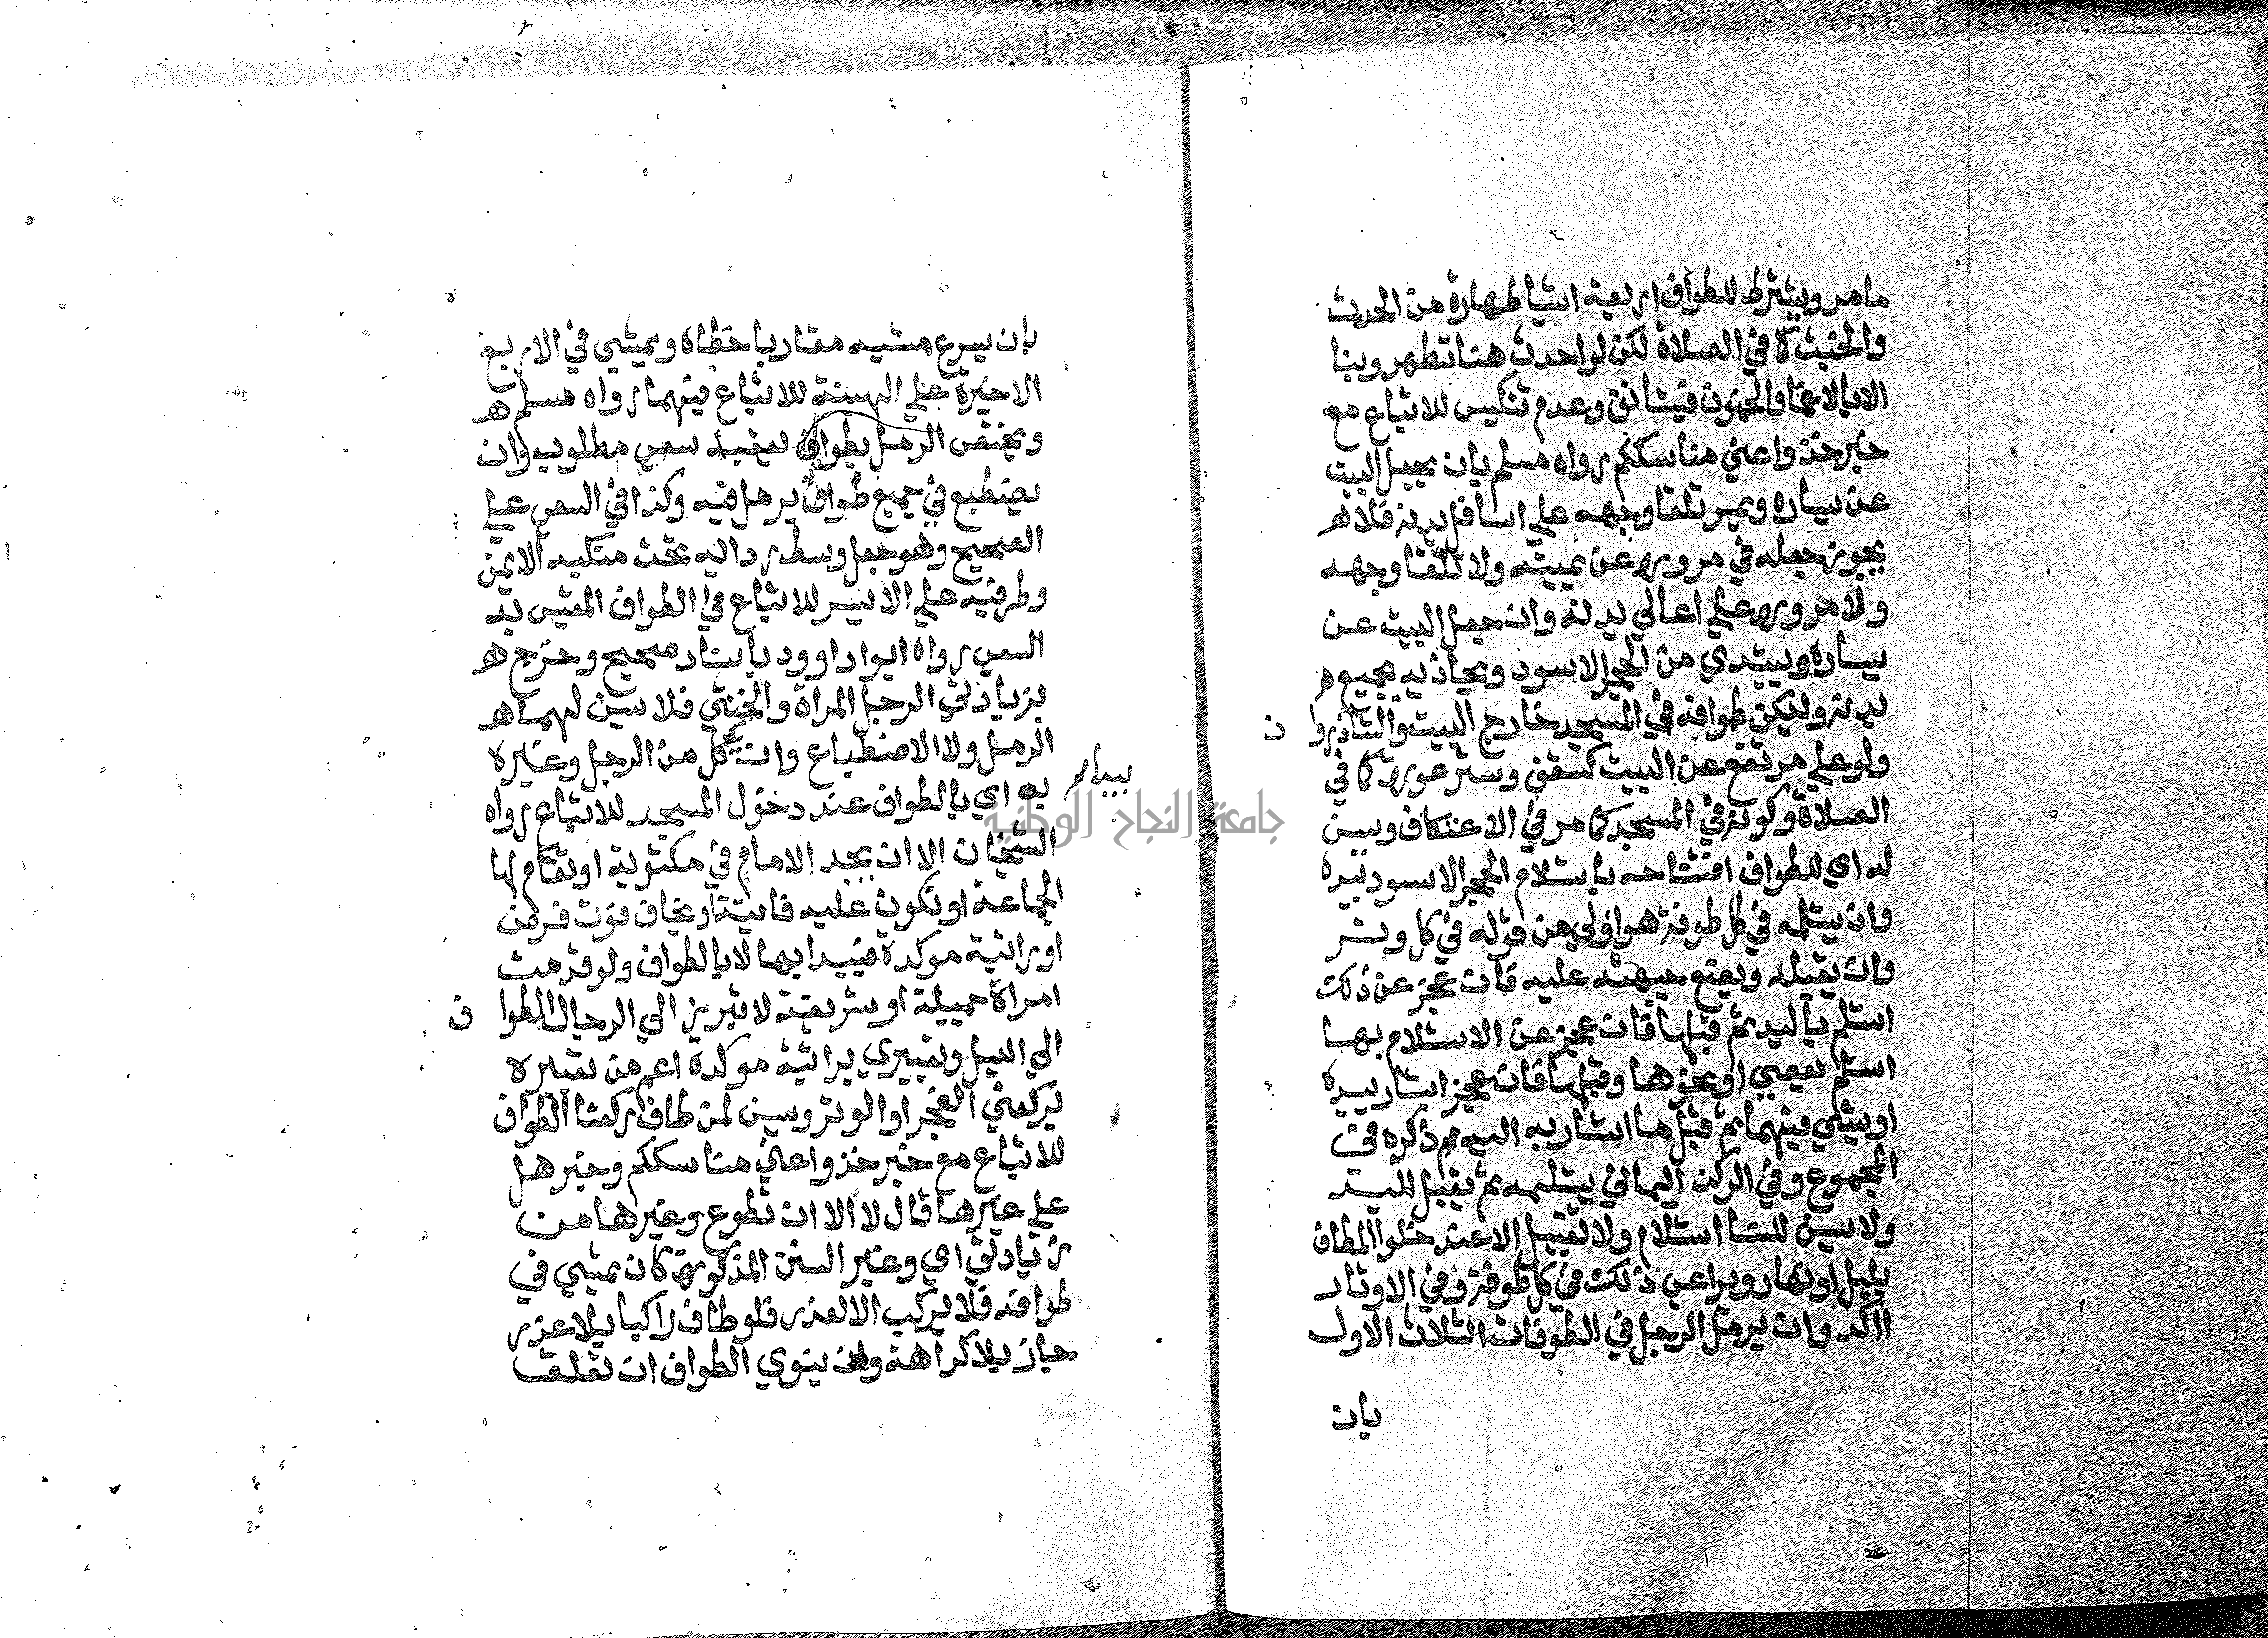 ما مر ويشترط للطواف اربعة اشيا طهارة من الحدث
والخبث كما في الصلاة لكن لو احدث هنا تطهر وبنا
الا بالاغما والجنون فيستانف وعدم تنكيس للاتباع مع
خبر خذوا عني مناسككم رواه مسلم بان يجعل البيت
عن يساره ويمر تلقا وجهه علي اسافل بدنه فلا
يجوز جعله في مروره عن يمينه ولا تلقا وجهه
ولا مروره علي اعالي بدنه وان جعل البيت عن
يساره ويبتدي من الحجر الاسود ويحاذيه بجميع
بدنه وليكن طوافه في المسجد خارج البيت والشاذروان
ولو علي مرتفع عن البيت كسقف وستر عورة كما في
الصلاة وكونه في المسجد كما مر في الاعتكاف وسن
له اي للطواف افتتاحه باستلام الحجر الاسود بيده
وان يستلمه في كل طوفة هو اولي من قوله في كل وتر
وان يقبله ويضع جبهته عليه فان عجز عن ذلك
استلم باليد ثم قبلها فان عجز عن الاستلام بها
استلم بعصي او نحوها وقبلها فان عجز اشار بيده
او بشي فيهما ثم قبل ما اشار به اليه ذكره في
المجموع وفي الركن اليماني يستلمه ثم يقبل اليد
ولا يسن للنسا استلام ولا تقبيل الا عند خلو المطاف
بليل او نهار ويراعي ذلك في كل طوفة وفي الاوتار
ااكد وان يرمل الرجل في الطوفات الثلاث الاول
بان
بان يسرع مشيه مقاربا خطاه ويمشي في الاربع
الاخيرة علي الهينة للاتباع فيهما رواه مسلم
ويختص الرمل بطواف يعقبه سعي مطلوب وان
يضطبع في جميع طواف يرمل فيه وكذا في السعي علي
الصحيح وهو جعل وسط ردائه تحت منكبه الايمن
وطرفيه علي الايسر للاتباع في الطواف المقيس به
السعي رواه ابوا داوود باسناد صحيح وخرج
بزيادتي الرجل المراة والخنثي فلا يسن لهما
الرمل ولا الاضطباع وان كل من الرجل وغيره
يبدا
به اي بالطواف عند دخول المسجد للاتباع رواه
الشيخان الا ان يجد الامام في مكتوبة او تقام لها
الجماعة او تكون عليه فايتة او يخاف فوت فرض
او راتبة موكدة فيبدا بها لا بالطواف ولو قدمت
امراة جميلة او شريفة لا تبرز الي الرجال الطواف
الي الليل وتعبيري براتبة موكدة اعم من تعبيره
بركعتي الفجر او الوتر وسن لمن طاف ركعتا الطواف
للاتباع مع خبر خذوا عني مناسككم وخبر هل
علي غيرها قال لا الا ان تطوع وغيرها من
زيادتي اي وغير السنن المذكورة كان يمشي في
طوافه فلا يركب الا لعذر فلو طاف راكبا بلا عذر
جاز بلا كراهة وان ينوي الطواف ان تعلق
جامعة النجاح الوطنية